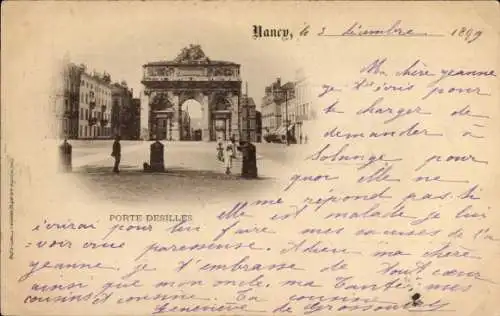 Nancy, le 3 décembre 1899
Ma chère jeanne
je t'écris pour
te charger de
demander à
Solange pourquoi
elle ne
me répond pas. Si
PORTE DESILLES
elle est malade je lui
écrirai pour lui faire mes excuses de l'a
=voir crue paresseuse. Adieu ma chère
jeanne, je t'embrasse de tout cœur
ainsi que mon oncle, ma Tante, mes
cousins et cousine. Ta cousine
Geneviève de